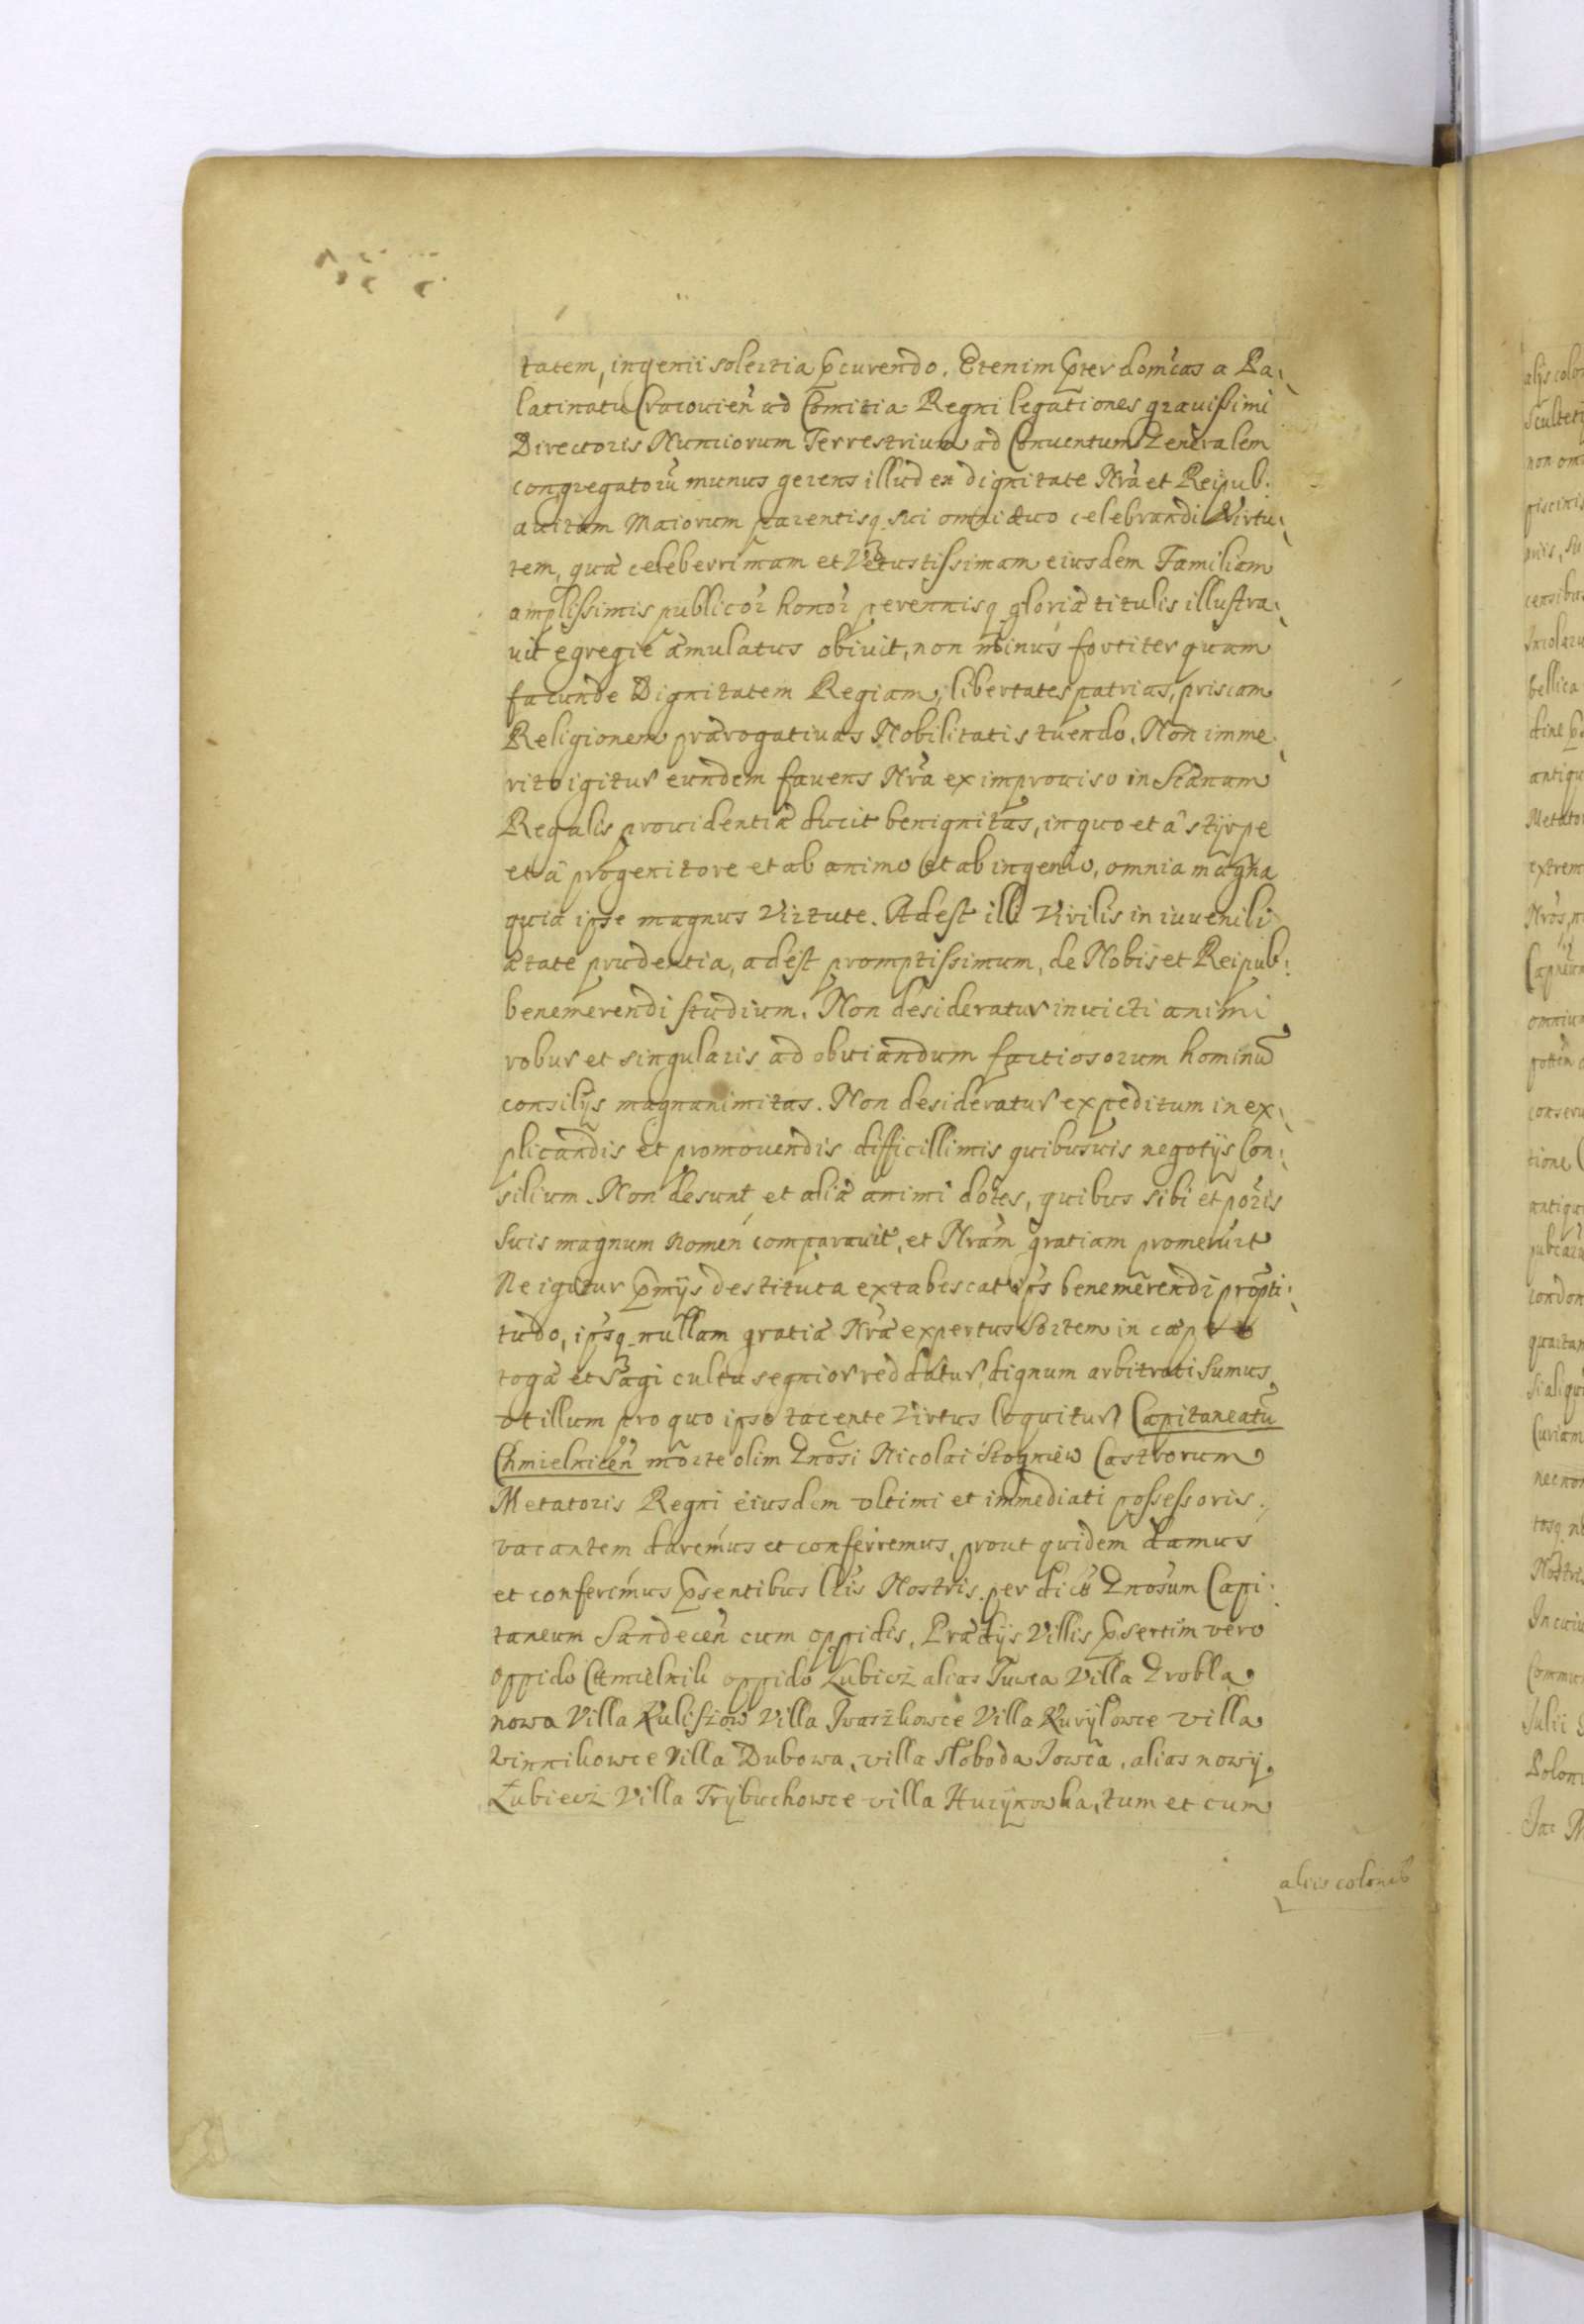 tatem, ingenii solertia ꝑcurendo. Etenim p̃ter domc̃as a Pa-
latinatu Cracovień ad Comitia Regni legationes gravissimi
Directoris Nunciorum Terrestrium ad Conventum Generalem
congregatorũ munus gerens illud ex dignitate Nrã et Reipub:
avitam Maiorum parentisq sui omni ævo celebrandi Virtu-
tem, quâ celeberrimam et Vetustissimam eiusdem Familiam
amplissimis publicor honor perennisq gloriæ titulis illustra-
vit egregie æmulatus obivit, non minus fortiter quam
facunde Dignitatem Regiam, libertates patrias, priscam
Religionem prærogativas Nobilitatis tuendo. Non imme-
rito igitur eundem favens Nrã ex improviso in Scænam
Regalis providentiæ ducit benignitas, in quo et â styrpe
et â progenitore et ab animo et ab ingenio, omnia magna
quia ipse magnus Virtute. Adest illi Virilis in iuvenili
ætate prudentia, adest promptissimum, de Nobis et Reipub:
benemerendi studium. Non desideratur invicti animi
robur et singularis ad obviandum factiosorum hominũ
consilijs magnanimitas. Non desideratur expeditum in ex-
plicandis et promovendis difficillimis quibusvis negotijs Con-
silium. Non desunt et aliæ animi dotes, quibus sibi et poris
suis magnum nomen comparavit, et Nrãm gratiam promeruit
Ne igitur p̃mijs destituta extabescat ip̃s benemerendi prõpti-
tudo, ip̃sq nullam gratiæ Nrã expertus Sortem in cæpto
togæ et Sagi cultu segnior reddatur, dignum arbitrati sumus
ut illum pro quo ipso tacente Virtus loquitur Capitaneatũ
Chmielnicen̄ morte olim Gnosi Nicolai Stogniew Castrorum
Metatoris Regni eiusdem ultimi et immediati possessoris
vacantem daremus et conferremus, prout quidem damus
et conferimus p̃sentibus Lris Nostris per dictũ Gnosum Capi-
taneum Sandecen̄ cum oppidis, Prædijs Villis p̃sertim vero
oppido Chmielnik oppido Łubicz alias Iuwca Villa Grobla
nowa Villa Kuliszow Villa Iwaszkowce Villa Kuryłowce villa
Winnikowce Villa Dubowa, villa Słoboda Iowca, alias nowy
Łubiecz Villa Trybuchowce villa Huzynowka, tum et cum
aliis colonib